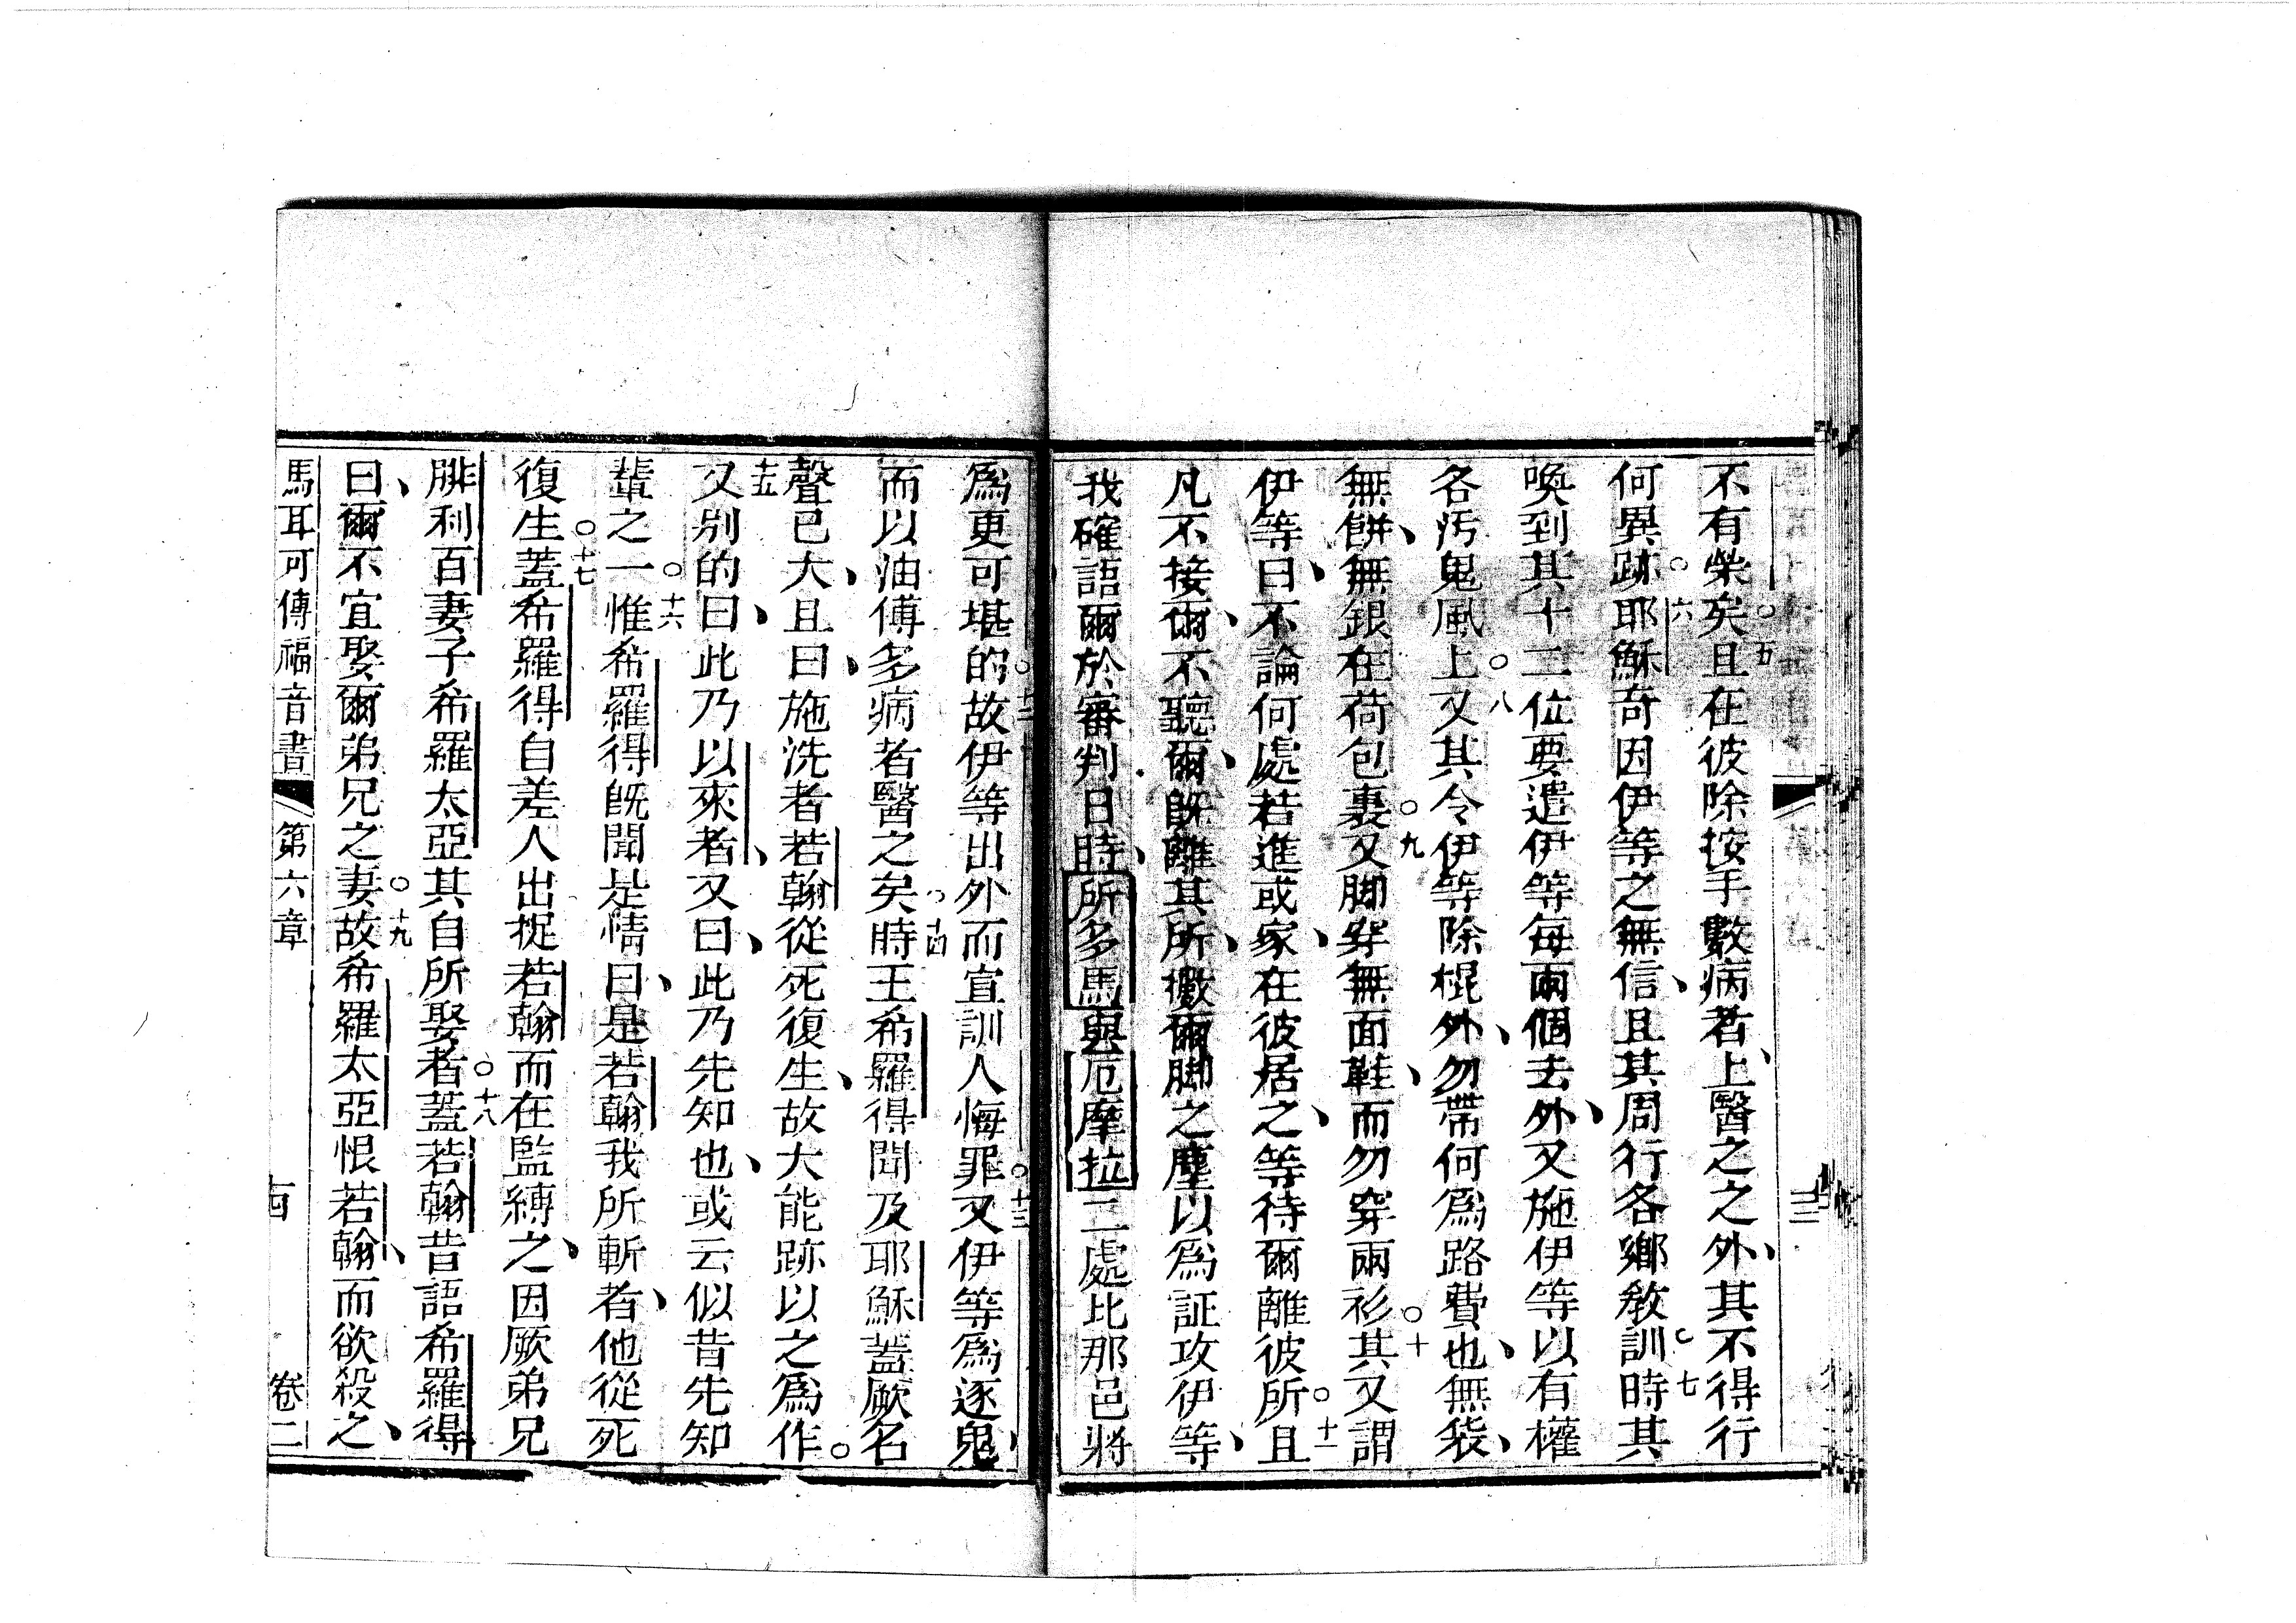 不有榮矣○五且在彼除按手數病者、上醫之之外、其不得行
何異跡○六耶穌奇因伊等之無信、且其周行各鄉教訓○七時其
喚到其十二位要遣伊等每兩個去外、又施伊等以有權
各汚鬼風上○八又其令伊等除棍外、勿帶何爲路費也、無袋、
無餅、無銀在荷包裏○九又脚穿無面鞋、而勿穿兩衫○十其又謂
伊等曰、不論何處若進或家、在彼居之、等待爾離彼所○十一且
凡不接爾、不聽爾、旣離其所、擻爾脚之塵以爲証攻伊等、
我確語爾於審判日時、所多馬與厄摩拉二處比那邑將
爲更可堪的○十二故伊等出外而宣訓人悔罪○十三又伊等爲逐鬼、
而以油傅多病者醫之矣○十四時王希羅得聞及耶穌蓋厥名
聲已大、且曰、施洗者若翰從死復生、故大能跡以之爲作○
十五又别的曰、此乃以來者、又曰、此乃先知也、或云似昔先知
輩之一○十六惟希羅得旣聞是情曰、是若翰我所斬者、他從死
復生○十七蓋希羅得自差人出捉若翰而在監縛之、因厥弟兄
腓利百妻子希羅太亞其自所娶者○十八蓋若翰昔語希羅得
曰、爾不宜娶爾弟兄之妻○十九故希羅太亞恨若翰、而欲殺之、
馬耳可傳福音書 第六章 十四 卷二